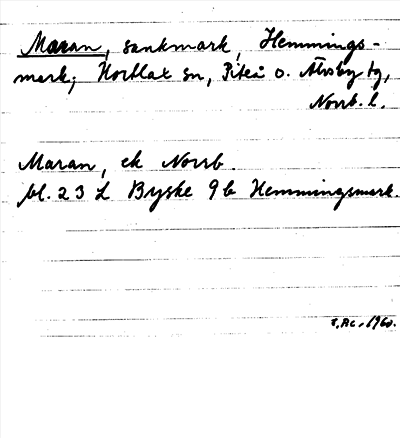 Maran, sankmark, Hemmings-
mark; Hortlax sn, Piteå o. Älvsby tg,
Norrb. l.
Maran, ek Norrb.
bl. 23 L Byske 9b Hemmingsmark.
1960.